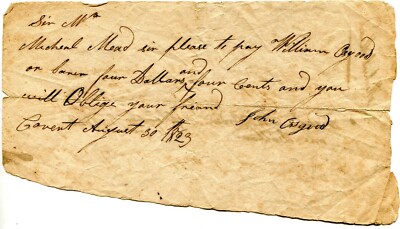 Sir Mr
Micheal Mead sir please to pay William Orsood
or barer four Dollars and four Cents and you
will Oblige your freand
Covent August 30th 1823 John Osgood